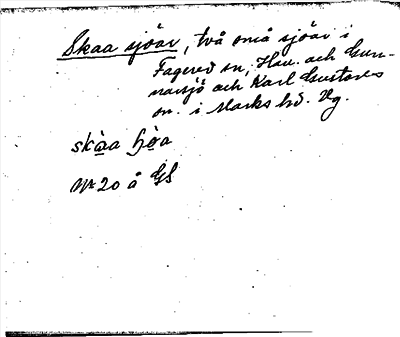 Skaa sjöar, två små sjöar i
Fagered sn, Hau. och Gun-
narsjö och Karl Gustavs
sn. i Marks hd. Vg.
skàa ɧò̤a
M 20 å GS